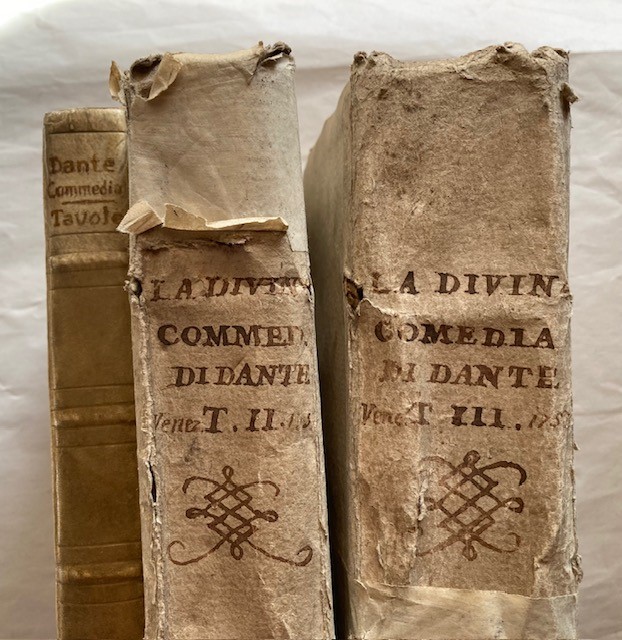 Dante
Commedia
Tavole
LA DIVIN
COMMED.
DI DANTE
Venez T. II.
LA DIVIN
COMEDIA
DI DANTE
Venez. T. III. 175